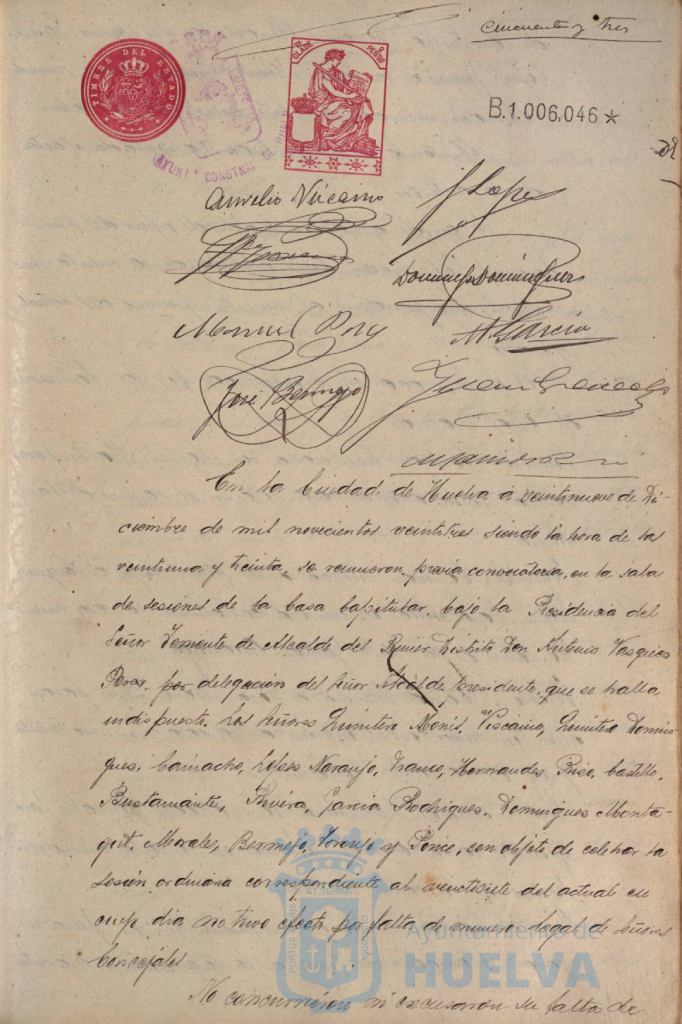 Cincuenta y tres
TIMBRE DEL ESTADO
CLASE
PESETAS
AYUNT CONSTNAL DE
B.1.006,046*
Aurelio Viscaino
J Lopez
Domingo Dominguez
Manuel
M. Garcia
José Bermejo
Juan
En la Ciudad de Huelva á veintinueve de Di-
ciembre de mil novecientos veintitres siendo la hora de las
veintiuna y treinta, se reunieron, previa convocatoria, en la sala
de sesiones de la Casa Capitular, bajo la Presidencia del
Señor Teniente de Alcalde del Primer Distrito Don Antonio Vasques
Peres, por delegación del Señor Alcalde Presidente, que se halla
indispuesto, los Señores Quintero Monís, Viscaino, Quintero Domin-
gues, Camacho, Lopes Naranjo, Franco, Hernandes, Rico, Castillo,
Bustamante, Garcia Rodrigues, Domingues Monta-
gut, Morales, Bermejo, Toronjo y Ponce, con objeto de celebrar la
sesión ordinaria correspondiente al veintisiete del actual en
cuyo dia no tuvo efecto por falta de numero legal de Señores
Concejales
No concurrieron ni excusaron su falta de
Ayuntamiento de
HUELVA